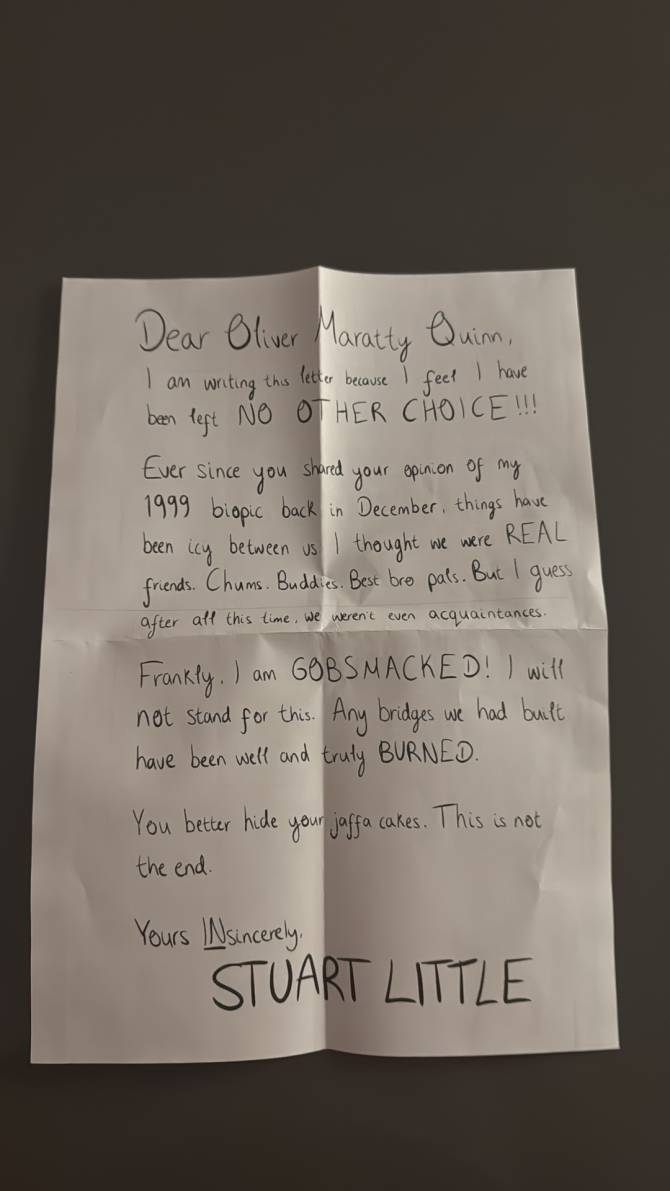 Dear Oliver Maratty Quinn,
I am writing this letter because I feel I have
been left NO OTHER CHOICE!!!
Ever since you shared your opinion of my
1999 biopic back in December, things have
been icy between us. I thought we were REAL
friends. Chums. Buddies. Best bro pals. But I guess
after all this time, we weren't even acquaintances.
Frankly, I am GOBSMACKED! I will
not stand for this. Any bridges we had built
have been well and truly BURNED.
You better hide your jaffa cakes. This is not
the end.
Yours INsincerely,
STUART LITTLE